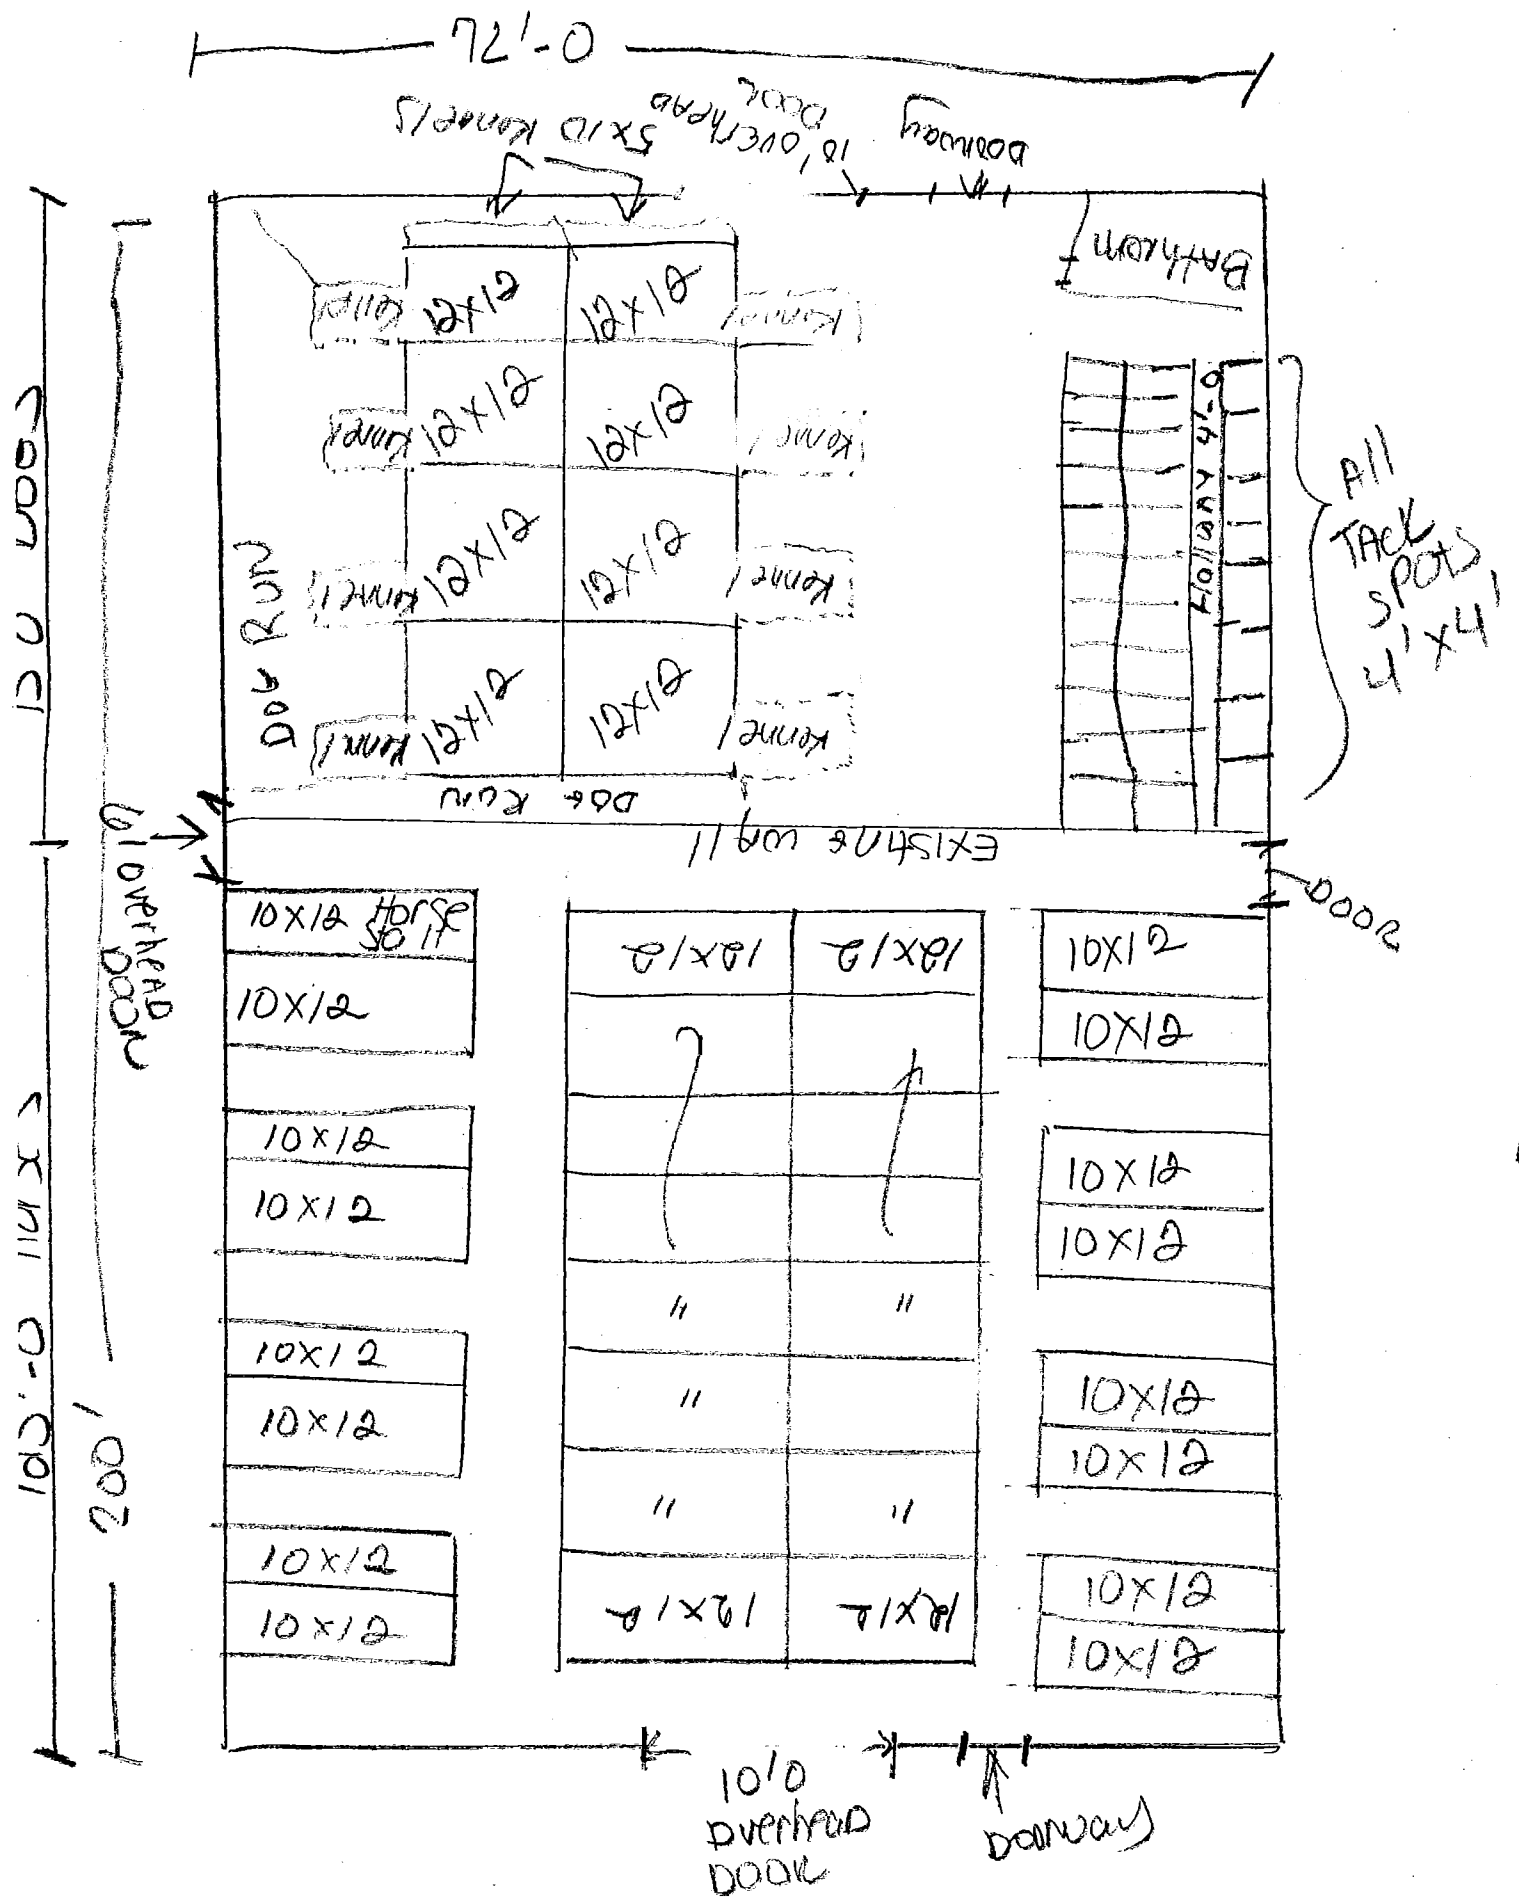 72'-0
5x10 Kennels
10' OVERHEAD
DOOR
Doorway
Bathroom
Kennel
12x12
12x12
Kennel
Kennel
12x12
12x12
Kennel
Kennel
12x12
12x12
Kennel
Kennel
12x12
12x12
Kennel
DOG RUN
DOG RUN
HallWAY 4'-0
All
TACK
SPOTS
4'x4'
EXISTING WALL
6' overhead
DOOR
DOOR
200'
10X12 Horse
10X12
10X12
10X12
10X12
10X12
10X12
10X12
12x12
12x12
"
"
"
"
"
12x12
12x12
10X12
10X12
10X12
10X12
10X12
10X12
10X12
10X12
10'0
OverheAD
DOOR
Doorway